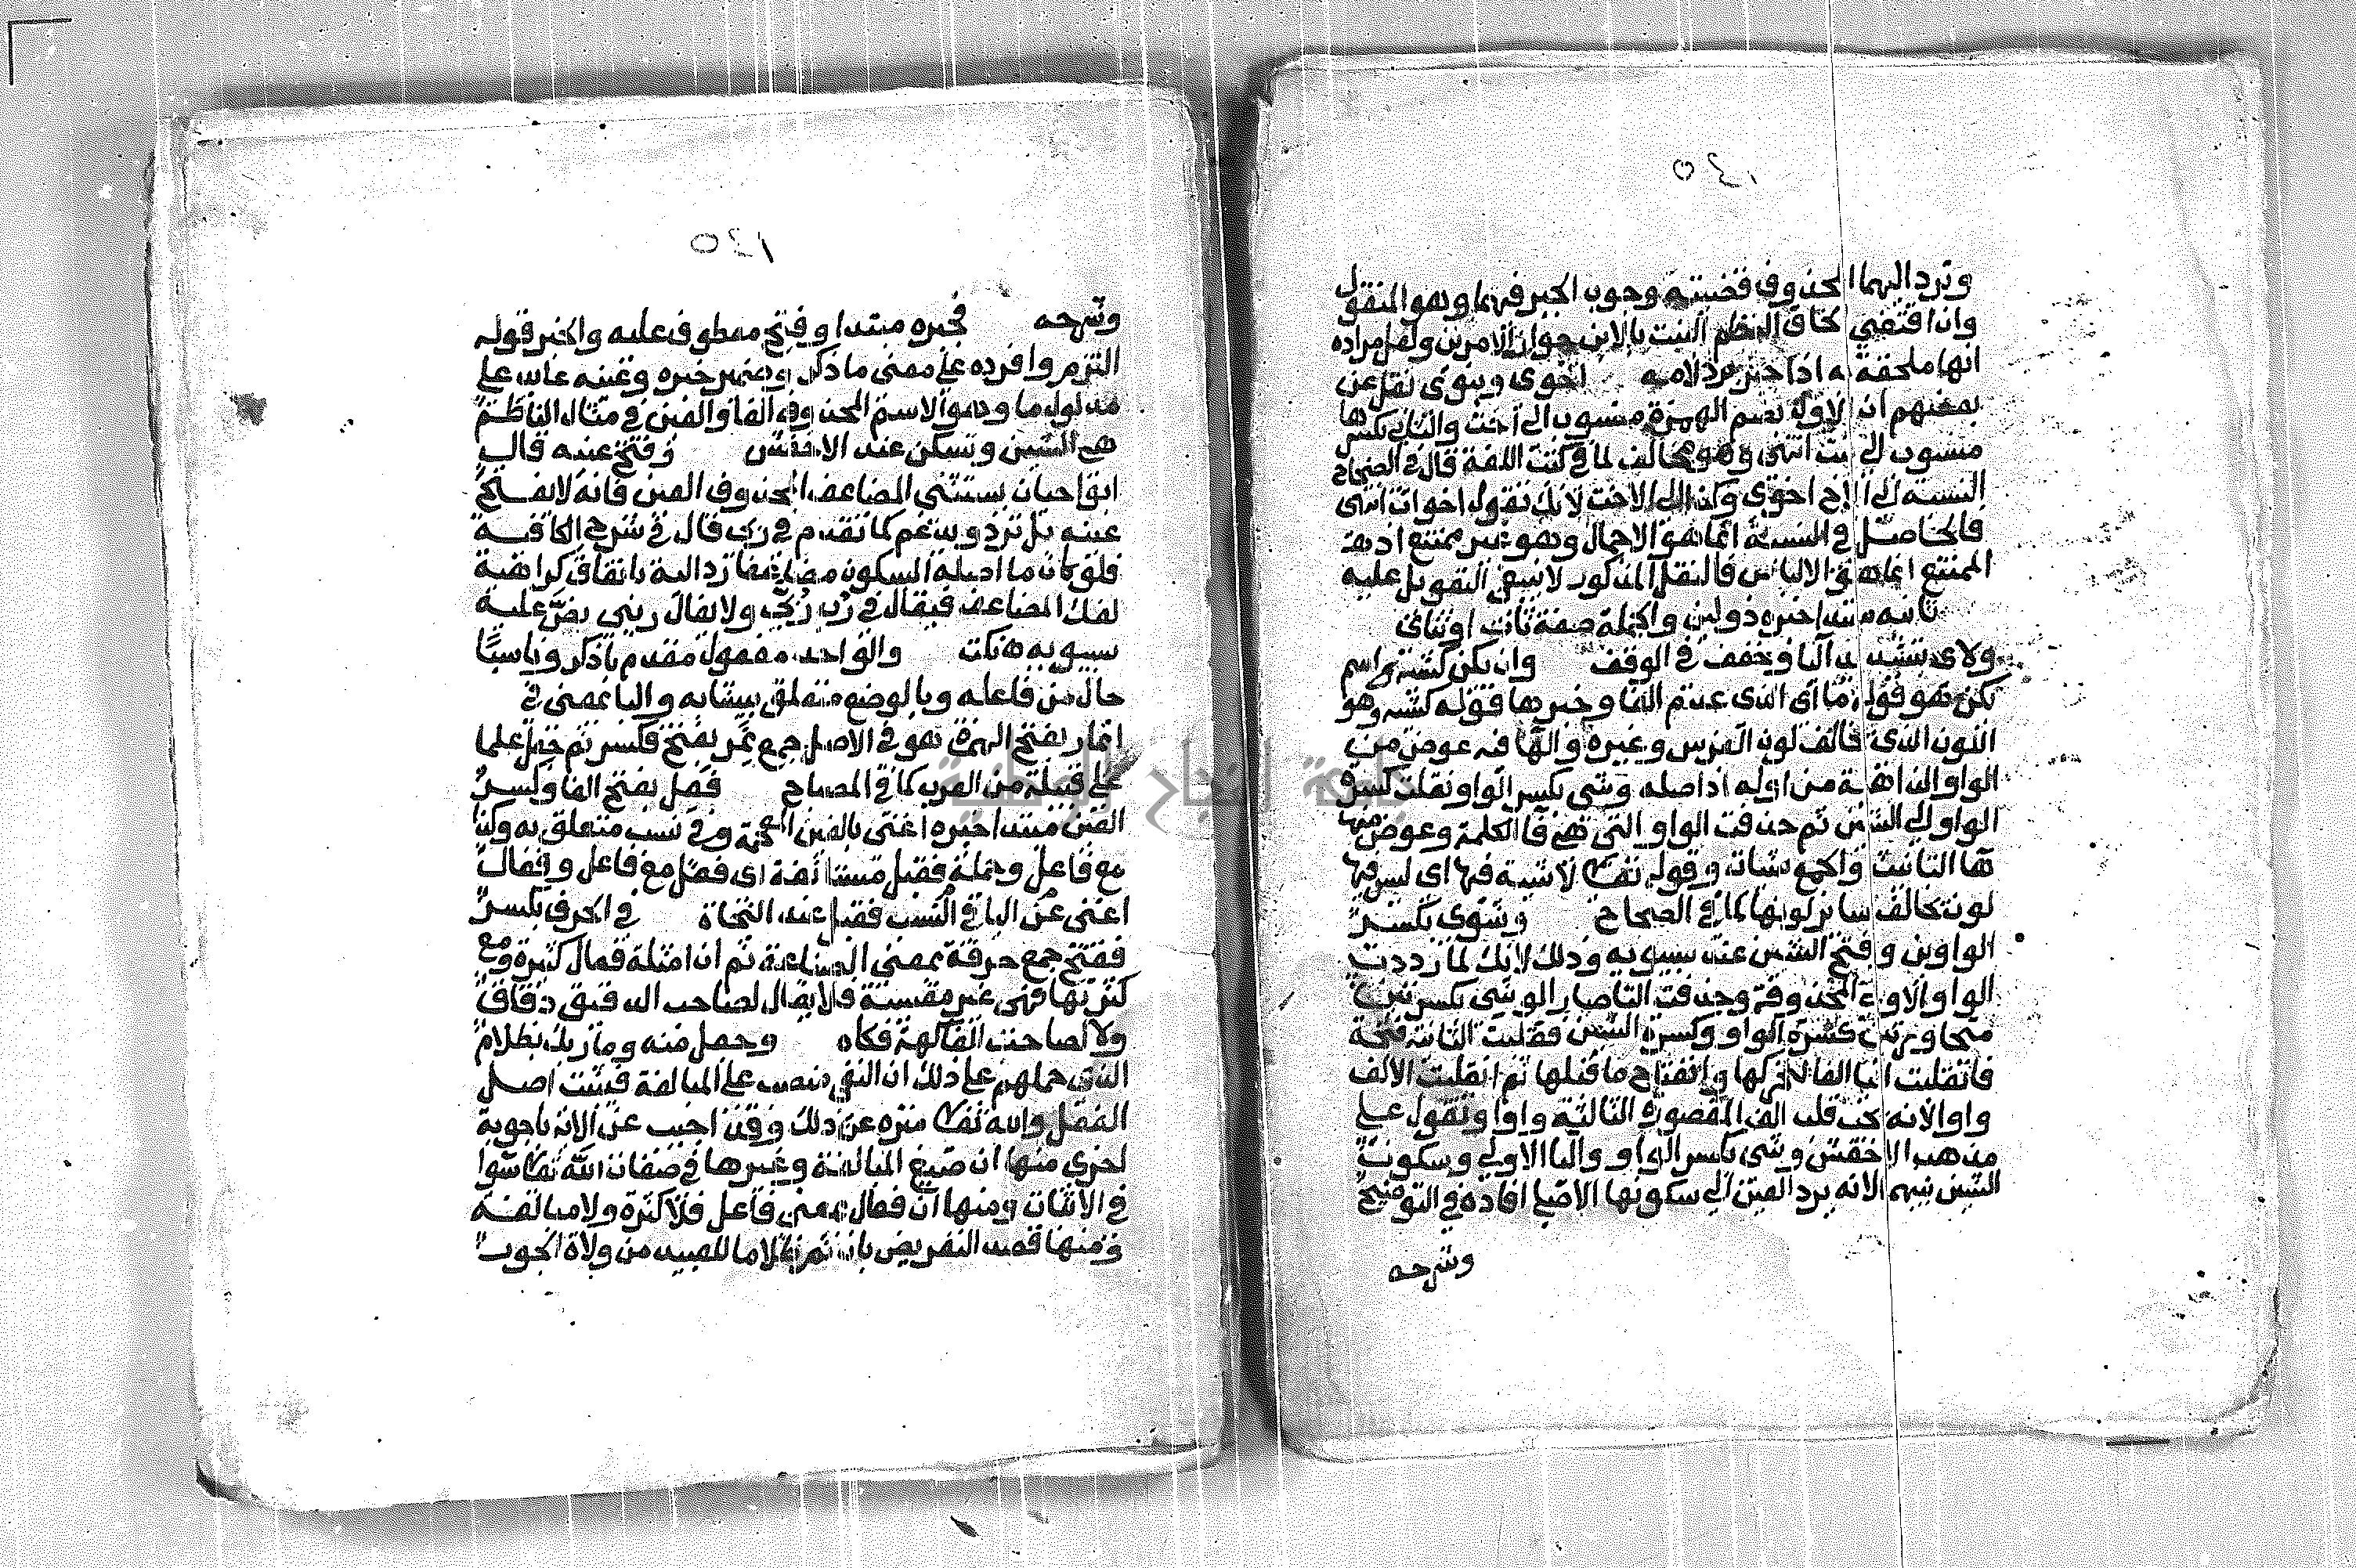 ٥٤٠
وترد اليهما المحذوف فقضيته وجوب الجبر فيهما وهو المنقول
وان اقتضى كاف النظم البنت بالابن جواز الامرين ولعل مراده
انها ملحقة به اذا جبر برد لامه اخوى وبنوى نقل عن
بعضهم ان الاول بضم الهمزة منسوب الى اخت والثانى بكسرها
منسوب الى بنت انتهى وهو مخالف لما فى كتب اللغة قال فى الصحاح
النسبة الى الاخ اخوى وكذا الى الاخت لانك تقول اخوات انتهى
فالحاصل فى النسبة انما هو الاجمال وهو غير ممتنع اذ
الممتنع انما هو الالباس فالنقل المذكور لا ينبغى التعويل عليه
ثانيه مبتدا خبره ذو لين والجملة صفة ثانت اوثناى
ولاى بتشديد اليا ويخفف فى الوقف وان يكن كشية اسم
يكن هو قوله ما اى الذى عدم الفا وخبرها قوله كشيه وهو
اللون الذى خالف لون الفرس وغيره والها فيه عوض من
الواو الذاهبة من اوله اذ اصله وشى بكسر الواو ونقلت كسرة
الواو الى الشين ثم حذفت الواو التى هى فا الكلمة وعوض منها
ها التانيث والجمع شيات وقوله تعالى لا شية فيها اى ليس فيها
لون يخالف سائر لونها كما فى الصحاح وشوى بكسر
الواوين وفتح الشين عند سيبويه وذلك لانك لما رددت
الواو الاولى المحذوفة وحذفت التا صار الوشى بكسرتين
كسرة الواو وكسرة الشين فقلبت الثانية فتحة
فانقلبت اليا الفا لتحركها وانفتاح ما قبلها ثم انقلبت الالف
واوا لانه يجب قلب الف المقصورة الثالثة واوا وتقول على
مذهب الاخفش وشى بكسر الواو واليا الاولى وسكون
الشين بينهما لانه يرد العين الى سكونها الاصلى افاده فى التوضيح
وشرحه
٥٤١
وشرحه فجبره مبتدا وفتح معطوف عليه والخبر قوله
التزم وافرده على معنى ما ذكر وضمير جبره وعينه عائد على
مدلول ما وهو الاسم المحذوف الفا والعين فى مثال الناظم
هى الشين وتسكن عند الاخفش وفتح عينه قال
ابو حيان يستثنى المضاعف المحذوف العين فانه لا يفتح
عينه بل ترد ويدغم كما تقدم فى رب قال فى شرح الكافية
فلو كان ما اصله السكون مضاعفا رد اليه باتفاق كراهية
لفك المضاعف فيقال فى رب ربى ولا يقال ربنى نص عليه
سيبويه هنكت والواحد مفعول مقدم باذكر وناسبا
حال من فاعله وبالوضع متعلق بيشابه والبا بمعنى فى
انمار بفتح الهمزة هو فى الاصل جمع نمر بفتح فكسر ثم جعل علما
على قبيلة من العرب كما فى المصباح فعل بفتح الفا وكسر
العين مبتدا خبره اغنى بالغين المعجمة وفى نسب متعلق به وكذا
مع فاعل وجملة فقبل مستانفة اى فعل مع فاعل وفعال
اغنى عن اليا فى النسب فقبل عند النحاة فى الحرف بكسر
ففتح جمع حرفة بمعنى الصناعة ثم ان امثلة فعال كثيرة ومع
كثرتها فهى غير مقيسة فلا يقال لصاحب الدقيق دقاق
ولا لصاحب الفاكهة فكاه وحمل منه وما ربك بظلام
الذى حملهم على ذلك ان النفى منصب على المبالغة فيثبت اصل
الفعل والله تعالى منزه عن ذلك وقد اجيب عن الاية باجوبة
اخرى منها ان صيغ المبالغة وغيرها فى صفات الله تعالى سوا
فى الاثبات ومنها ان فعال بمعنى فاعل فلا كثرة ولا مبالغة
ومنها قصد التعريض بان ثم ظلاما للعبيد من ولاة الجور